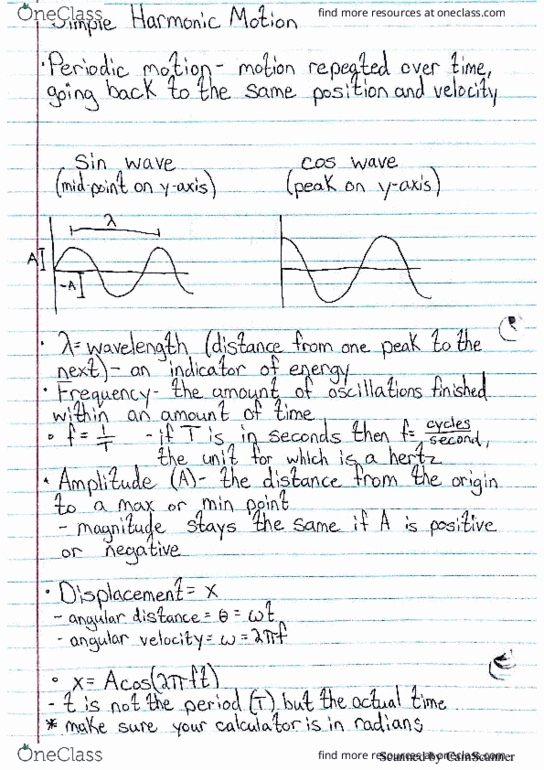 OneClass
find more resources at oneclass.com
Simple Harmonic Motion
· Periodic motion - motion repeated over time,
going back to the same position and velocity
Sin wave
(mid-point on y-axis)
cos wave
(peak on y-axis)
λ
A
-A
· λ = wavelength (distance from one peak to the
next) - an indicator of energy
· Frequency - the amount of oscillations finished
within an amount of time
∘ f = 1/T - if T is in seconds then f = cycles/second,
the unit for which is a hertz
· Amplitude (A) - the distance from the origin
to a max or min point
- magnitude stays the same if A is positive
or negative
· Displacement = x
- angular distance = θ = ωt
- angular velocity = ω = 2πf
∘ x = Acos(2πft)
- t is not the period (T) but the actual time
* make sure your calculator is in radians
OneClass
find more resources at oneclass.com
Scanned by CamScanner